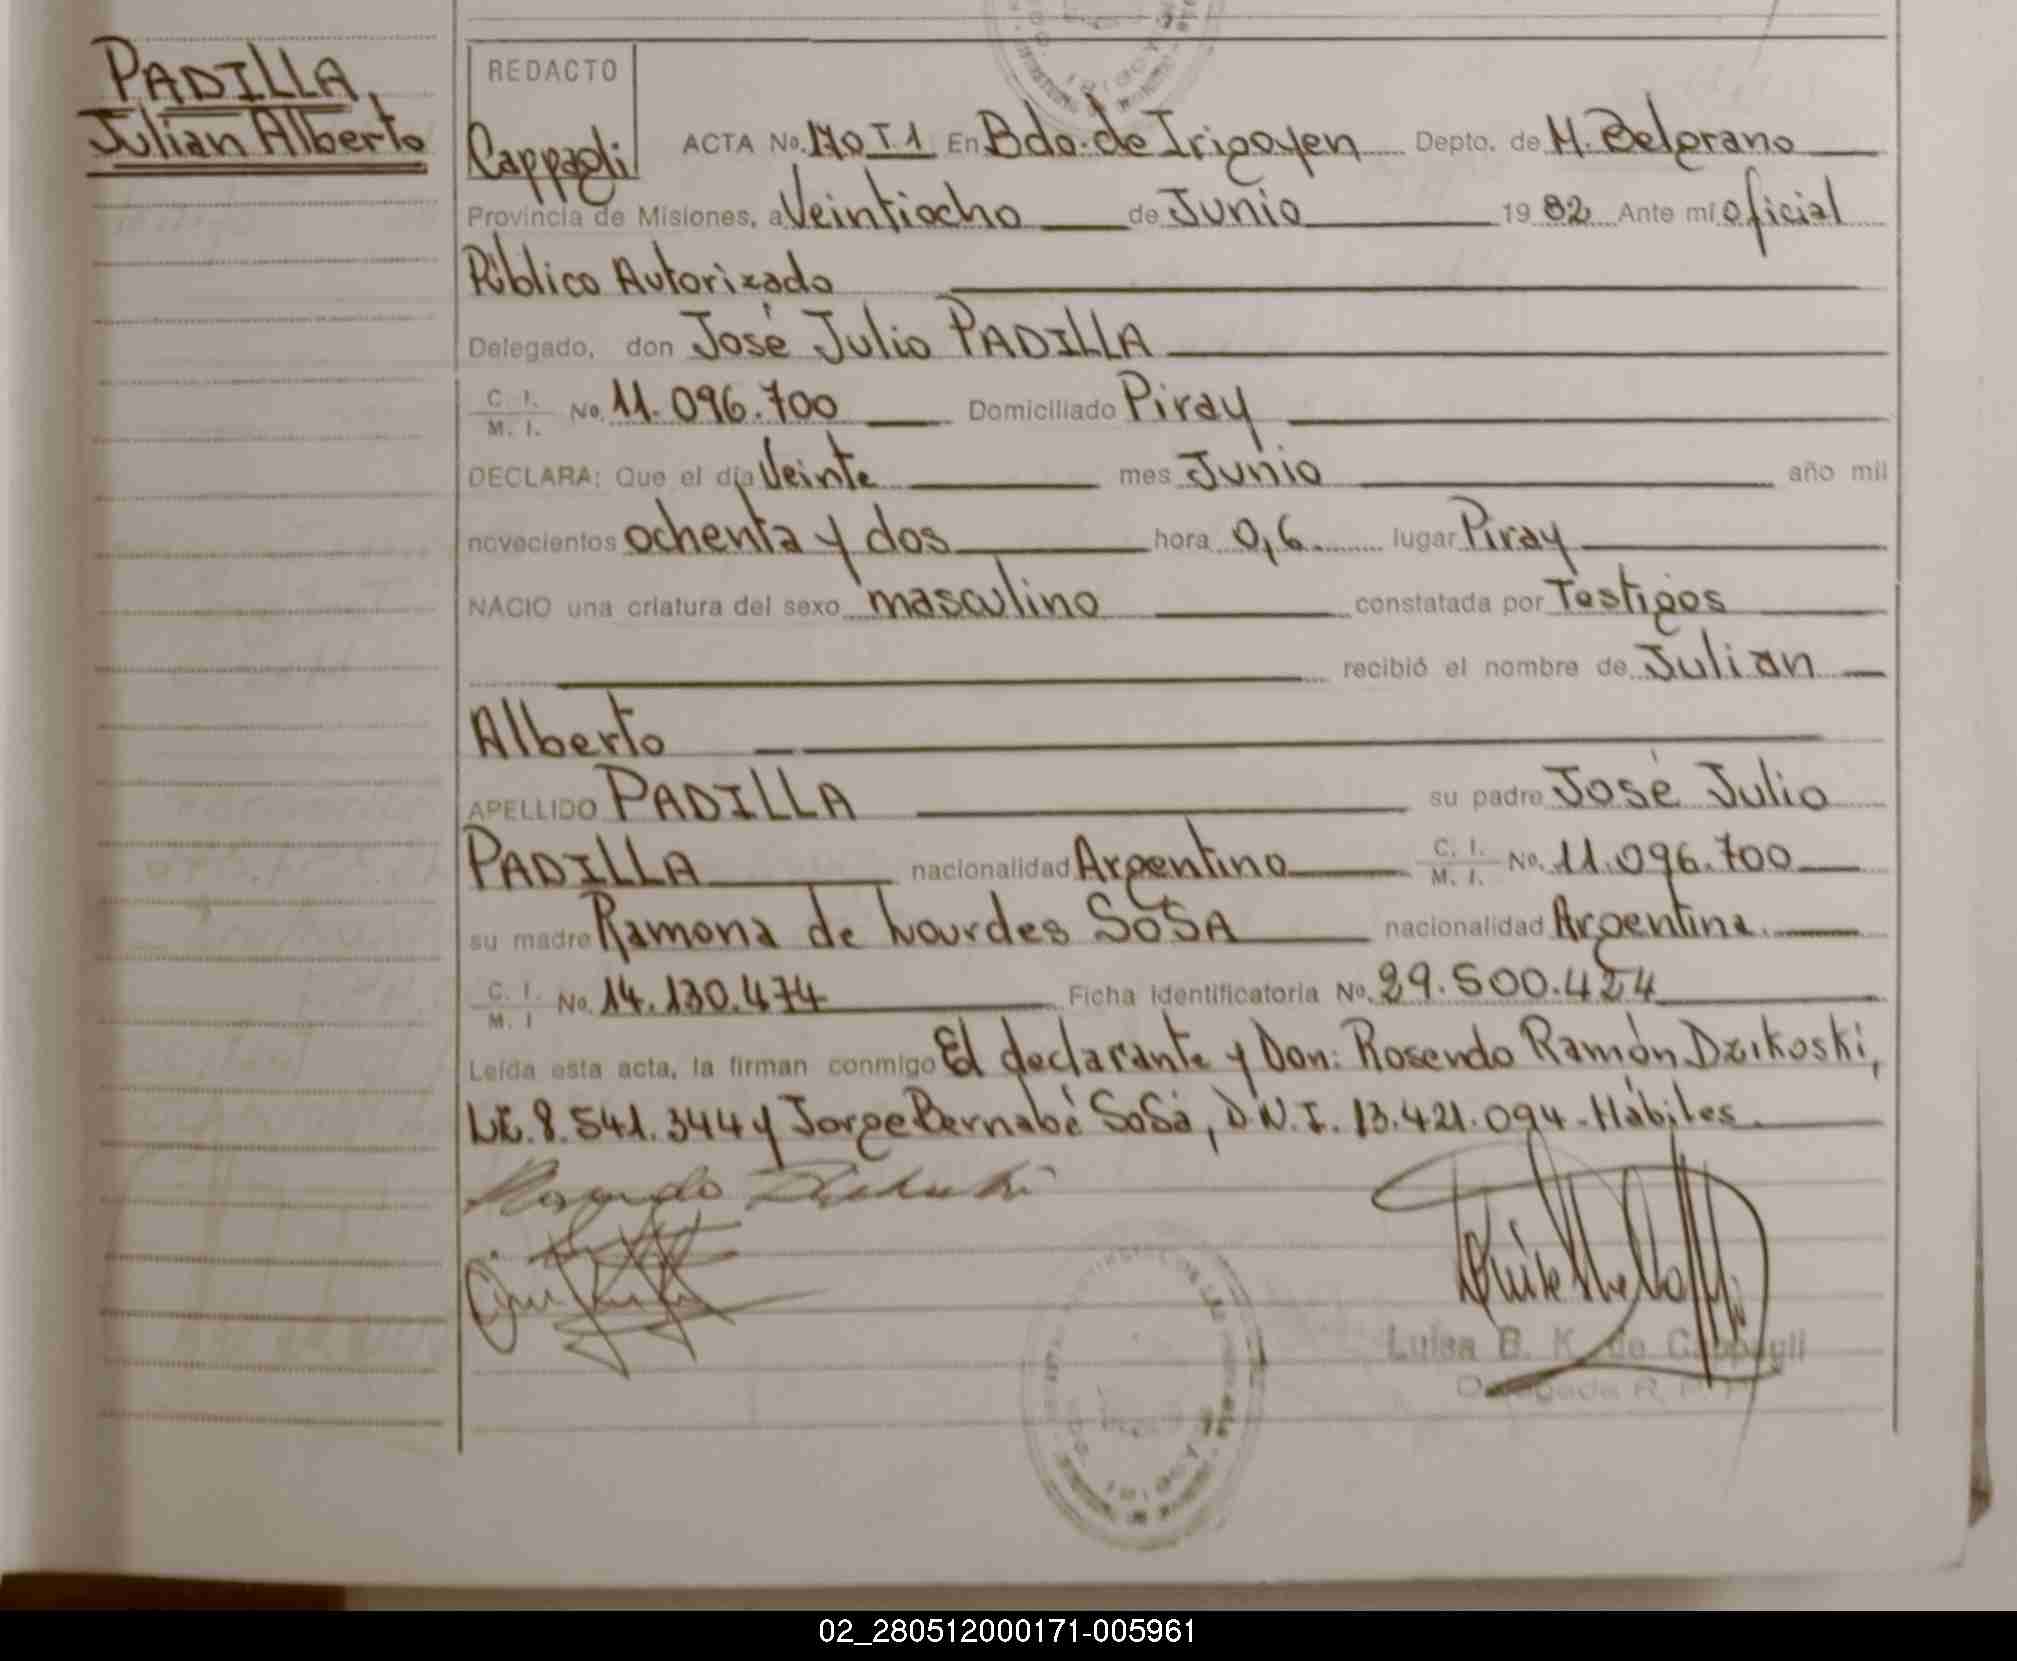 PADILLA,
Julian Alberto
REDACTO
Cappagli
ACTA No. 170 T1 En Bdo. de Irigoyen Depto. de M. Belgrano
Provincia de Misiones, a Veintiocho de Junio 1982 Ante mi oficial
Público Autorizado
Delegado, don José Julio PADILLA
C. I. / M. I. No. 11.096.700 Domiciliado Piray
DECLARA: Que el día Veinte mes Junio año mil
novecientos ochenta y dos hora 0,6 lugar Piray
NACIO una criatura del sexo masculino constatada por Testigos
recibió el nombre de Julian
Alberto
APELLIDO PADILLA su padre José Julio
PADILLA nacionalidad Argentino C. I. / M. I. No. 11.096.700
su madre Ramona de Lourdes SOSA nacionalidad Argentina.
C. I. / M. I No. 14.130.474 Ficha Identificatoria No. 29.500.424
Leída esta acta, la firman conmigo El declarante y Don: Rosendo Ramón Dzikoski,
L.E. 8.541.344 y Jorge Bernabé SoSa, D.N.I. 13.421.094 - Hábiles
Luisa B. K. de Cappagli
Delegada R. P. P.
02_280512000171-005961